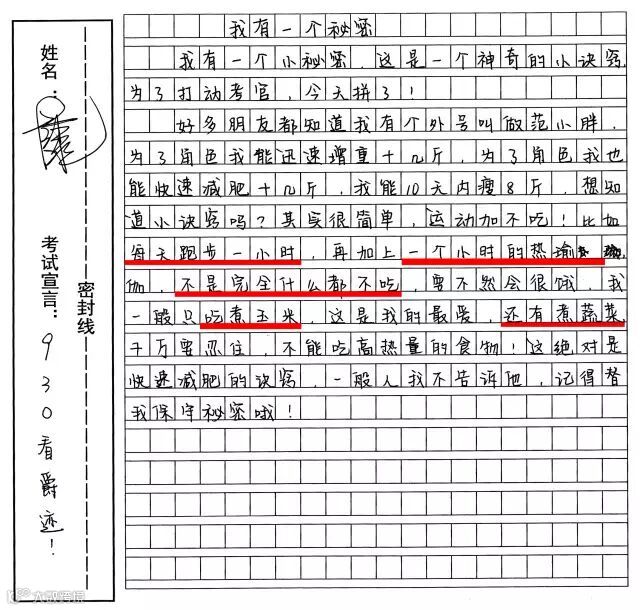 我有一个秘密
我有一个小秘密，这是一个神奇的小诀窍，
为了打动考官，今天拼了！
好多朋友都知道我有个外号叫做范小胖，
为了角色我能迅速增重十几斤，为了角色我也
能快速减肥十几斤，我能10天内瘦8斤，想知
道小诀窍吗？其实很简单，运动加不吃！比如
每天跑步一小时，再加上一个小时的热瑜
伽，不是完全什么都不吃，要不然会很饿，我
一般只吃煮玉米，这是我的最爱，还有煮蔬菜，
千万要忍住，不能吃高热量的食物！这绝对是
快速减肥的诀窍，一般人我不告诉他，记得替
我保守秘密哦！
姓名：
考试宣言：930看爵迹！
密封线
大数跨境